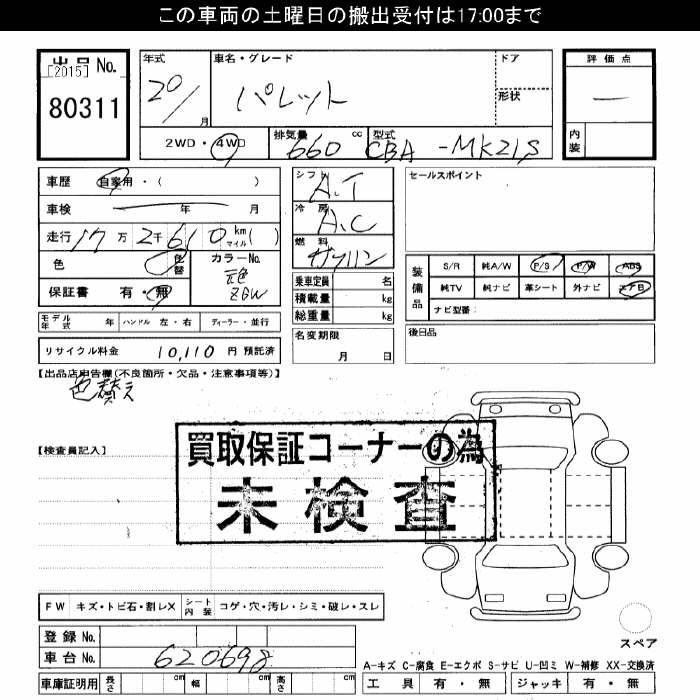 この車両の土曜日の搬出受付は17:00まで
出品 No.
[2015]
80311
年式
20/
月
車名・グレード
パレット
ドア
形状
評価点
—
内装
2WD・4WD
排気量
660 cc
型式
CBA-MK21S
車歴 自家用・( )
車検 年 月
走行 17万2千610 km マイル( )
色 色替
カラーNo.
元色
ZGW
保証書 有・無
シフト
A.T
冷房
A.C
燃料
ガソリン
乗車定員 名
積載量 kg
総重量 kg
名変期限
月 日
セールスポイント
装備品
S/R 純A/W P/S P/W ABS
純TV 純ナビ 革シート 外ナビ エアB
ナビ型番:
後日品
モデル年式 年 ハンドル 左・右 ディーラー・並行
リサイクル料金 10,110 円 預託済
【出品店申告欄(不良箇所・欠品・注意事項等)】
色替え
【検査員記入】
買取保証コーナーの為
未検査
FW キズ・トビ石・割レX シート内装 コゲ・穴・汚レ・シミ・破レ・スレ
登録 No.
車台 No. 620698
車庫証明用 長さ cm 幅 cm 高さ cm
スペア
A-キズ C-腐食 E-エクボ S-サビ U-凹ミ W-補修 XX-交換済
工具 有・無 ジャッキ 有・無